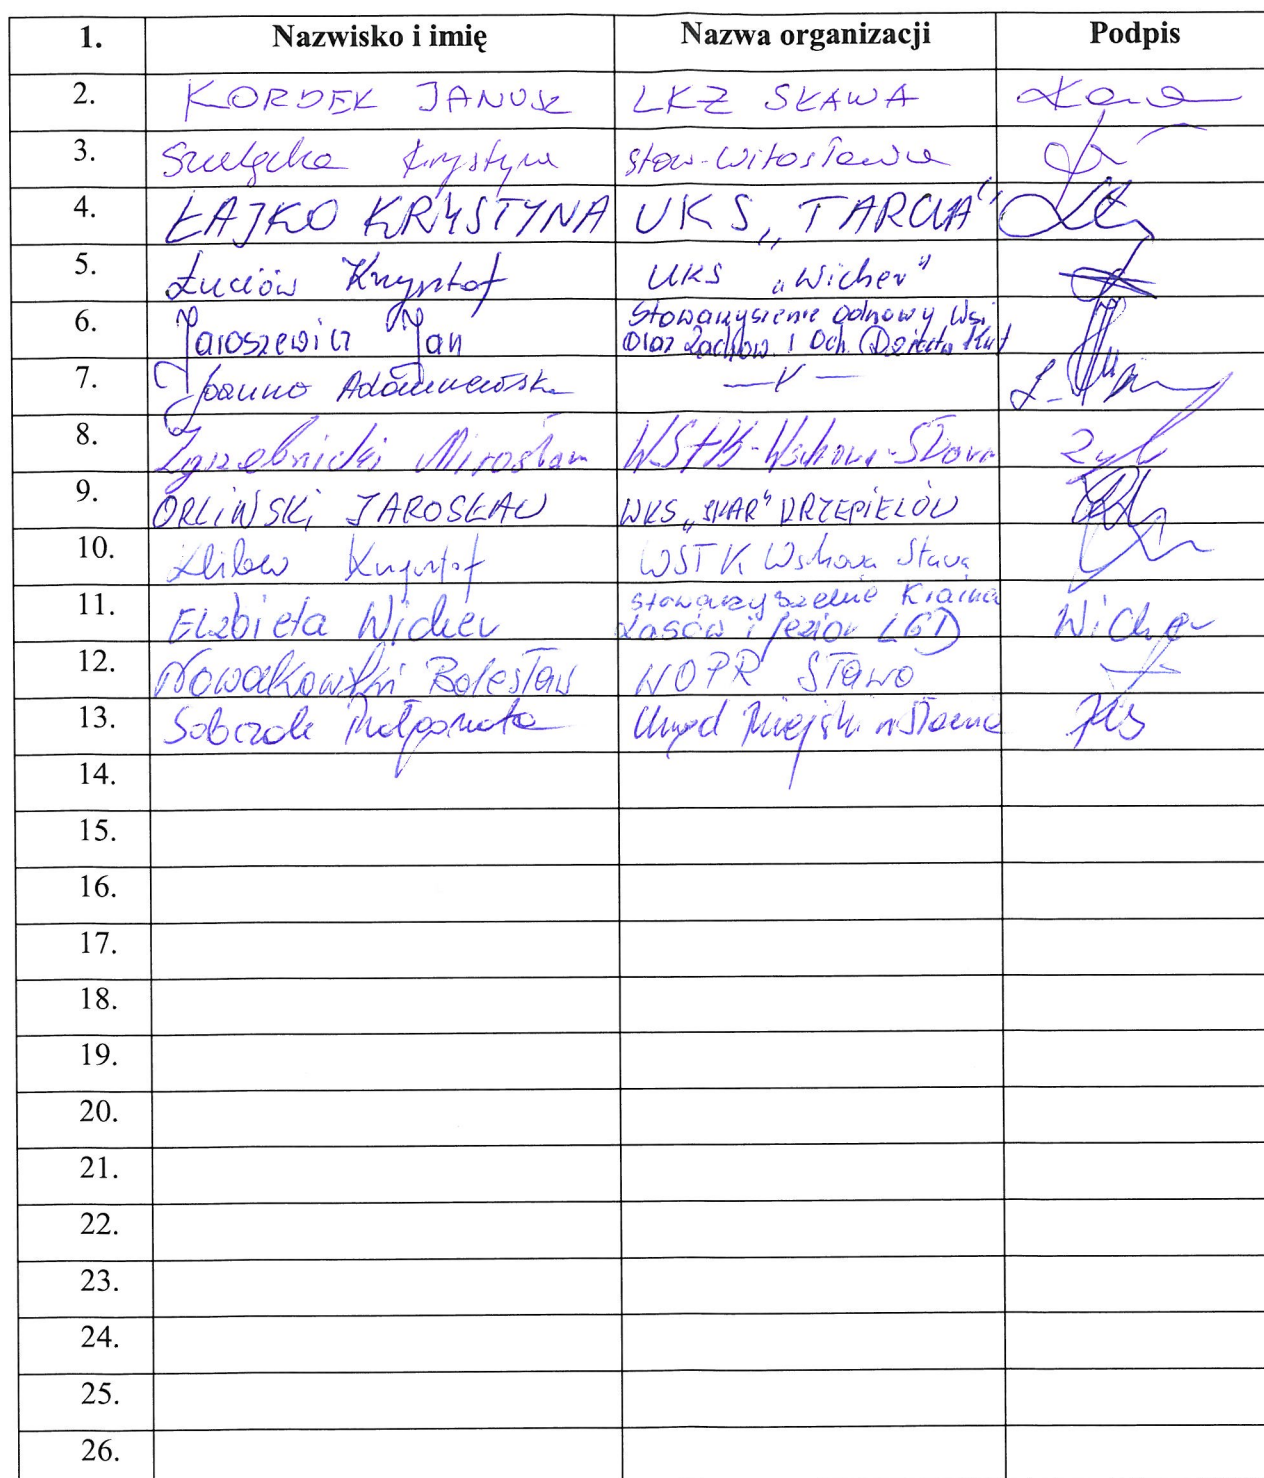 1. Nazwisko i imię Nazwa organizacji Podpis
2. KORDEK JANUSZ LKZ SŁAWA
3. Szulęcka Krystyna Stow. Witosławia
4. ŁAJKO KRYSTYNA UKS „TARCZA"
5. Łuciów Krzysztof UKS „Wicher"
6. Jaroszewicz Jan Stowarzyszenie Odnowy Wsi
oraz Zachow. i Och. Dziedz. Kult
7. Joanna —〃—
8. Zgrzebnicki Mirosław WSTK-Wschowa-Sława
9. ORLIŃSKI JAROSŁAW WKS „ISKAR" KRZEPIELÓW
10. Krzysztof WSTK Wschowa Sława
11. Elżbieta Wicher Stowarzyszenie Kraina
Lasów i Jezior LGD Wicher
12. Nowakowski Bolesław WOPR Sława
13. Sobczak Małgorzata Urząd Miejski w Sławie
14.
15.
16.
17.
18.
19.
20.
21.
22.
23.
24.
25.
26.